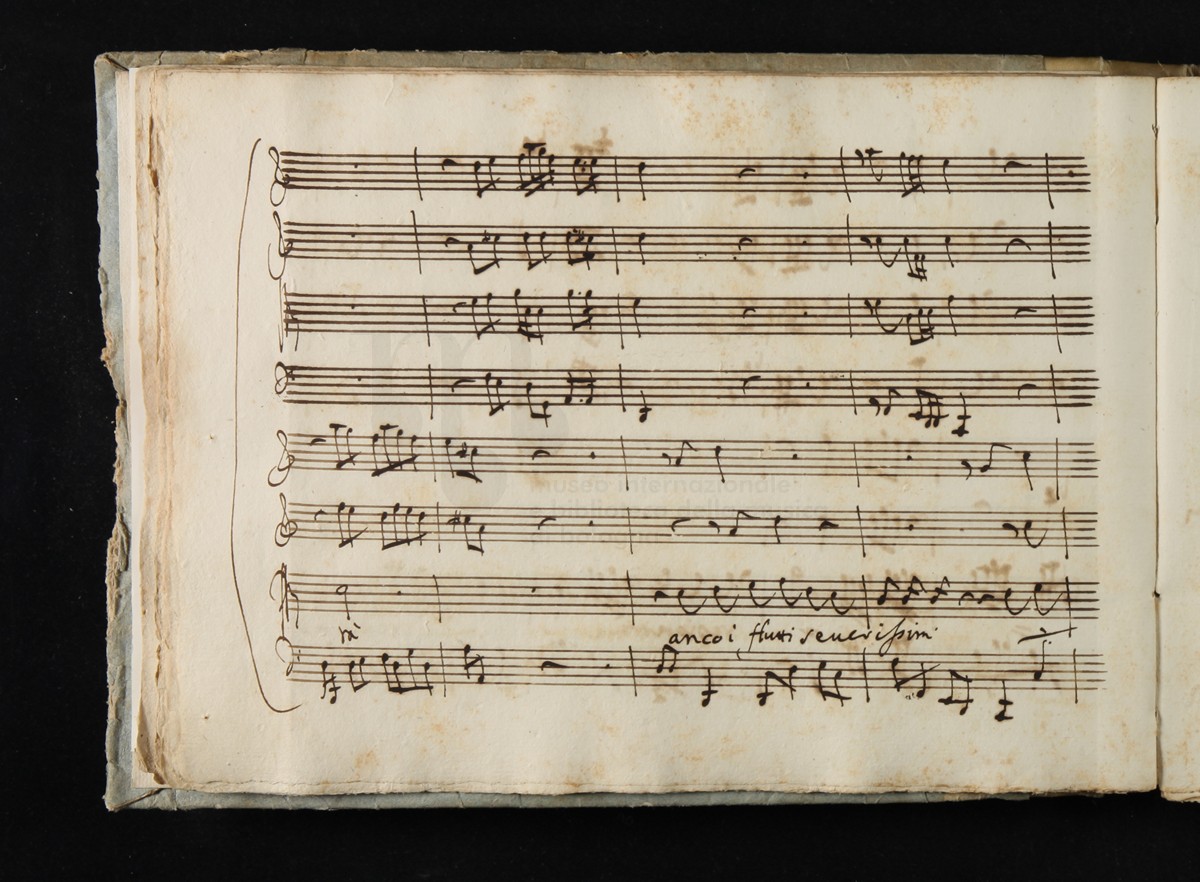 museo internazionale
e biblioteca della musica
di bologna
rà
anco i flutti severissimi